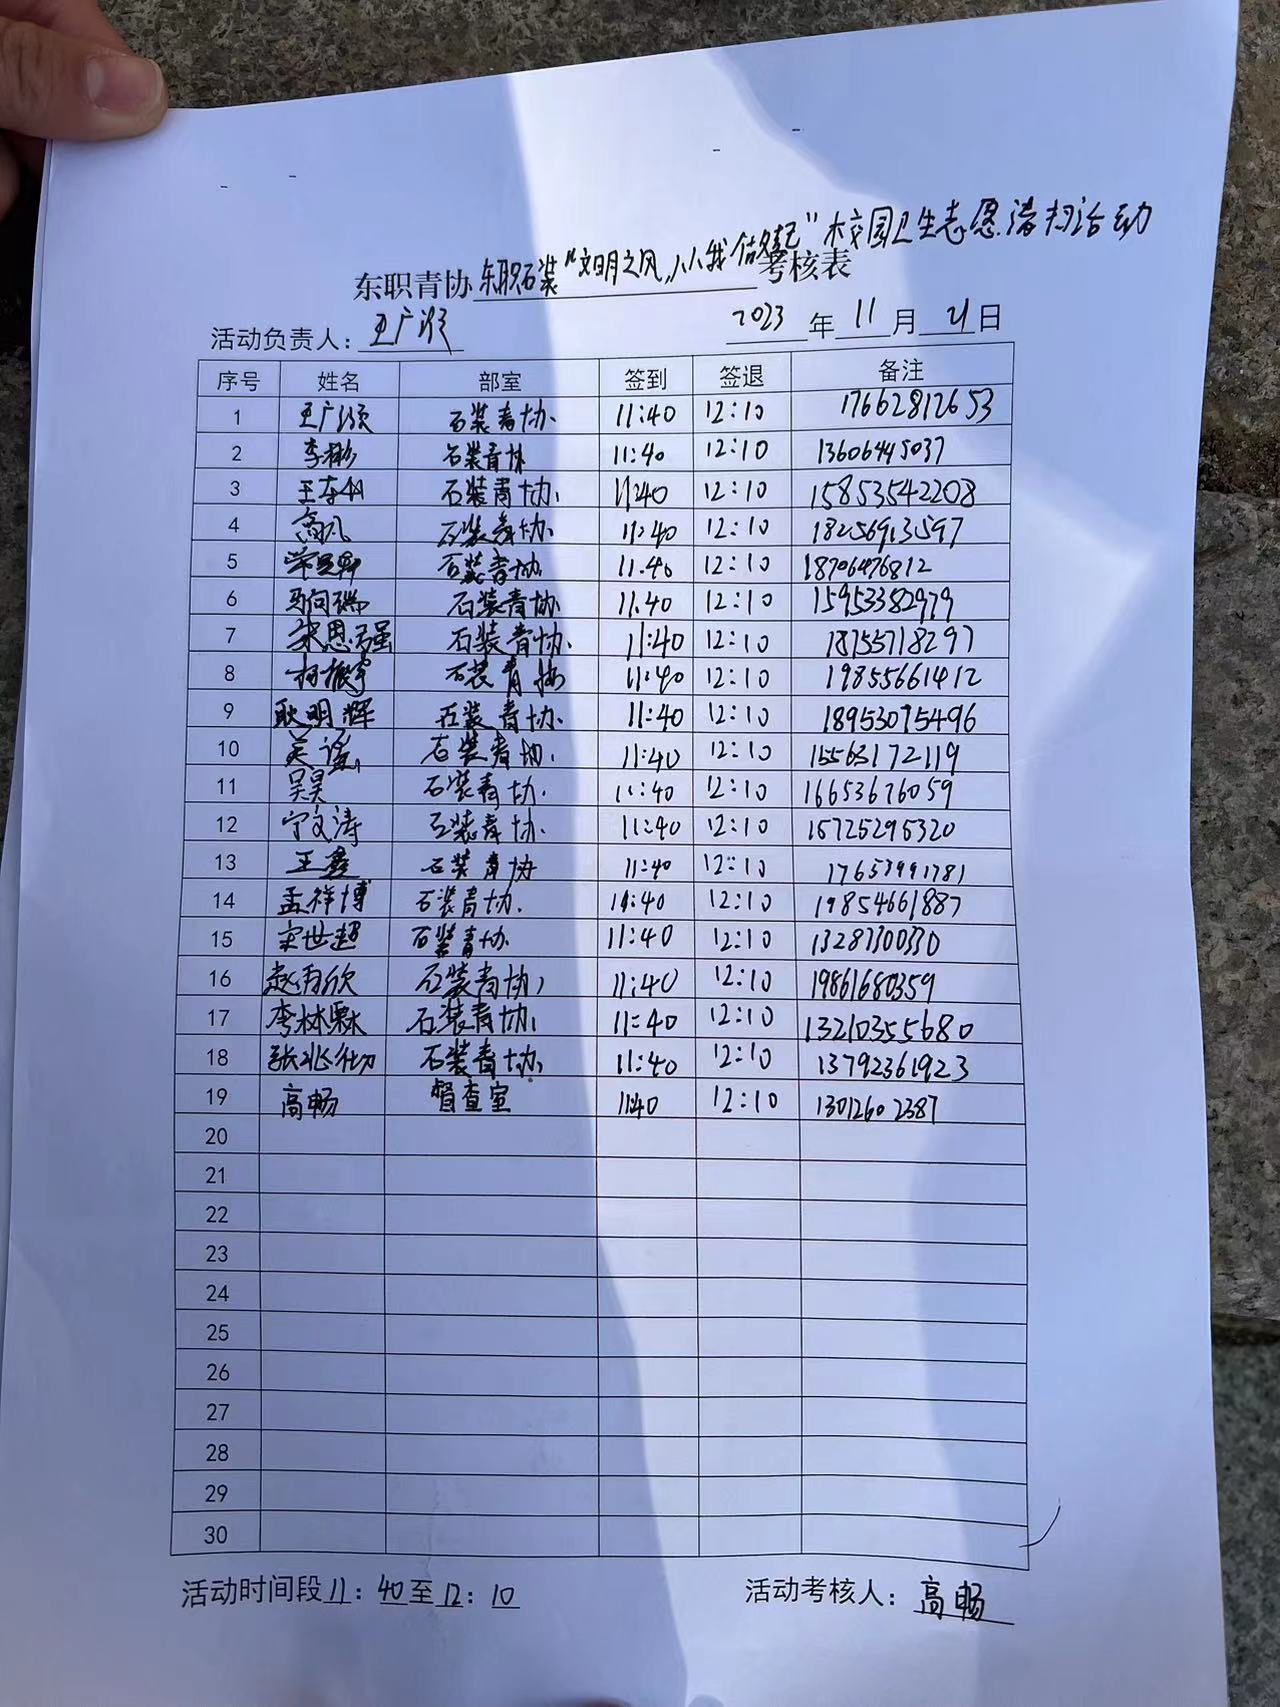 东职青协东职石装"文明之风,从我做起"校园卫生志愿清扫活动考核表
活动负责人:王广顺 2023年11月21日
序号 姓名 部室 签到 签退 备注
1 王广顺 石装青协 11:40 12:10 17662812653
2 李彬 石装青协 11:40 12:10 13606445037
3 石装青协 11:40 12:10 15853542208
4 高凡 石装青协 11:40 12:10 18256913597
5 石装青协 11:40 12:10 18706476812
6 石装青协 11:40 12:10 15953382979
7 宋恩强 石装青协 11:40 12:10 18755718297
8 杨振宇 石装青协 11:40 12:10 19855661412
9 耿明辉 石装青协 11:40 12:10 18953075496
10 石装青协 11:40 12:10 15563172119
11 吴昊 石装青协 11:40 12:10 16653676059
12 宁文涛 石装青协 11:40 12:10 15725295320
13 王鑫 石装青协 11:40 12:10 17653991781
14 孟祥博 石装青协 11:40 12:10 19854661887
15 宋世超 石装青协 11:40 12:10 13287300330
16 赵雨欣 石装青协 11:40 12:10 19861680359
17 李林霖 石装青协 11:40 12:10 13210355680
18 张兆彻 石装青协 11:40 12:10 13792361923
19 高畅 督查室 11:40 12:10 13012602387
20
21
22
23
24
25
26
27
28
29
30
活动时间段11:40至12:10 活动考核人:高畅